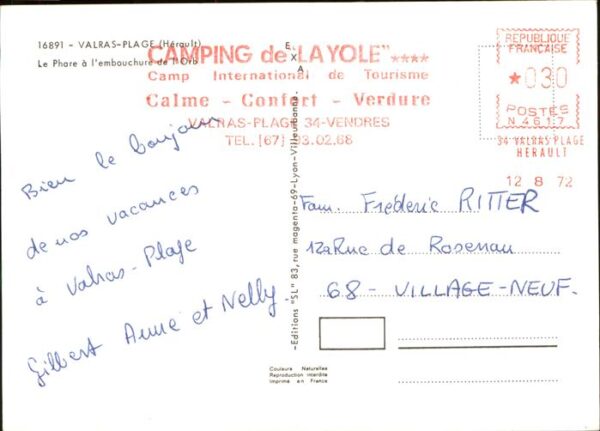 16891 - VALRAS-PLAGE (Hérault)
Le Phare à l'embouchure de l'Orb
CAMPING de "LAYOLE" ****
Camp International de Tourisme
Calme - Confort - Verdure
VALRAS-PLAGE 34-VENDRES
TEL. [67] 93.02.68
REPUBLIQUE
FRANCAISE
*030
POSTES
N 4617
34 VALRAS PLAGE
HERAULT
12 8 72
Bien le bonjour
de nos vacances
à Valras-Plage
Gilbert Anne et Nelly.
-Editions "SL" 83, rue magenta-69-Lyon-Villeurbanne.
EXA
Fam. Frédéric RITTER
12a Rue de Rosenau
68 - VILLAGE-NEUF.
Couleurs Naturelles
Reproduction interdite
Imprimé en France